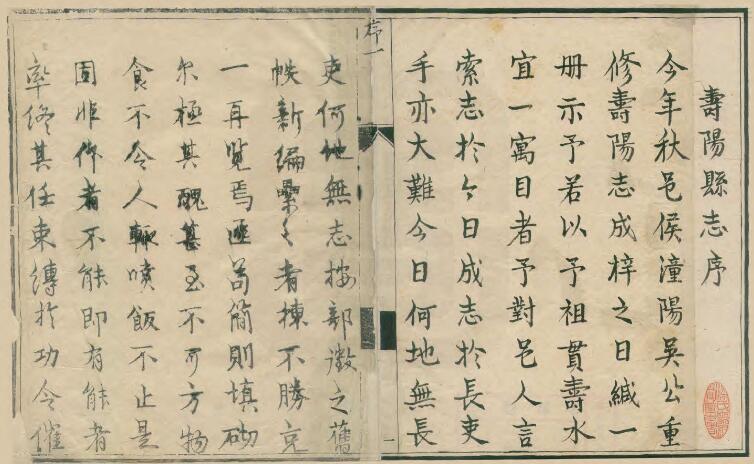 壽陽縣志序
今年秋邑侯潼陽吳公重
修壽陽志成梓之日緘一
冊示予若以予祖貫壽水
宜一寓目者予對邑人言
索志於今日成志於長吏
手亦大難今日何地無長
序一
吏何地無志按部徵之舊
帙新編纍纍者揀不勝充
一再覽焉匪苟簡則填砌
尔極其醜甚至不可方物
食不令人輒噴飯不止是
固非作者不能即有能者
率終其任束縛於功令催
一